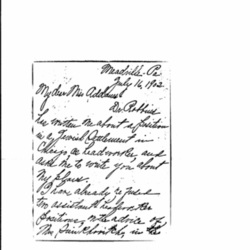 Meadville - Pa
July 16, 1902
My dear Miss Addams
Dr. Robbins
has written me about a position
in a Jewish Settlement in
Chicago as headworker, and
asks me to write you about
my plans.
I have already refused
two assistant headworker
positions, on the advice of
Mrs. in the